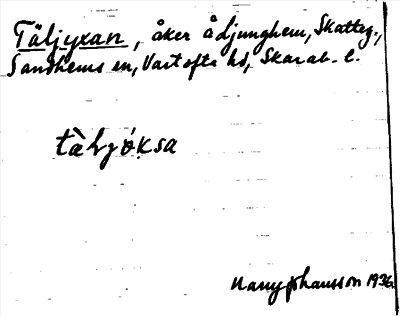 Täljyxan, åker å Ljunghem, Skatteg.,
Sandhems sn, Vartofta hd, Skarab. l.
tàljỏksa
Harry Johansson 1936